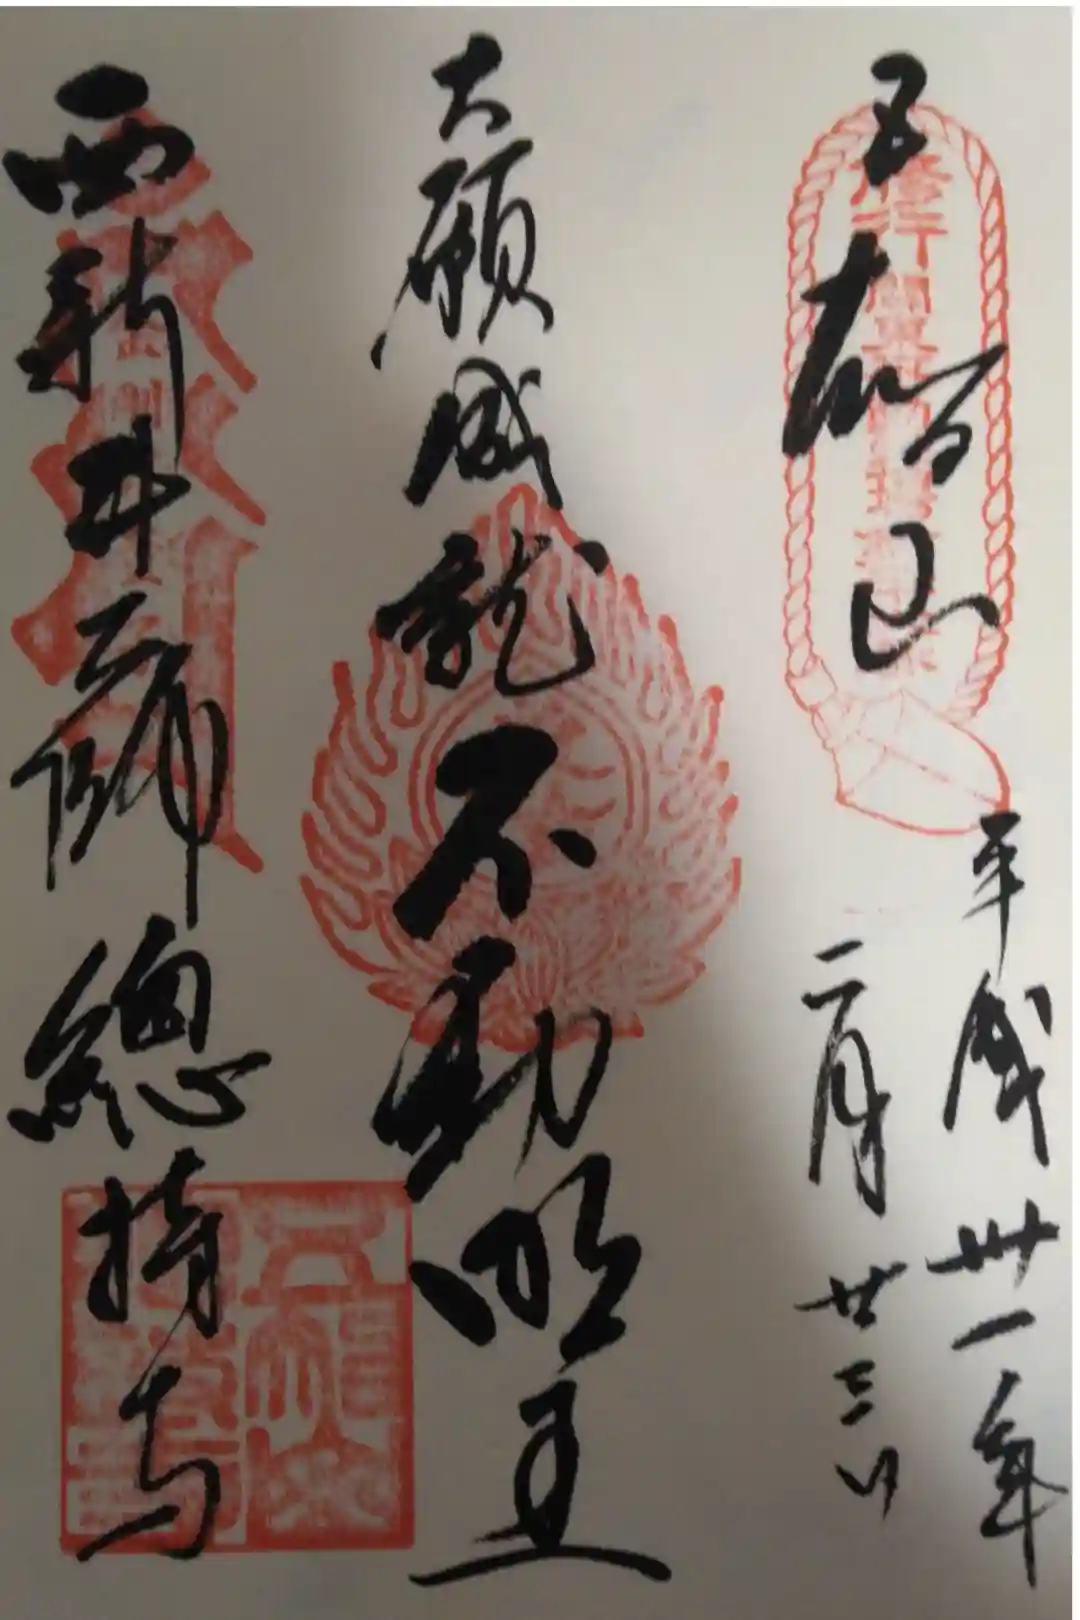 五智山
平成卅一年
二月廿三日
大願成就不動明王
西新井大師總持寺
五智山